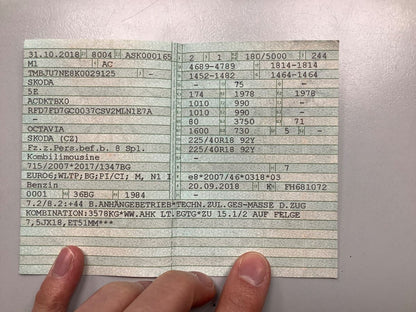 31.10.2018 8004 ASK000165
M1 AC
TMBJU7NE8K0029125 -
SKODA
5E
ACDKTBX0
RFD7FD7GC0037CSV2MLN1E7A
-
OCTAVIA
SKODA (CZ)
Fz.z.Pers.bef.b. 8 Spl.
Kombilimousine
715/2007*2017/1347BG
EURO6;WLTP;BG;PI/CI; M, N1 I
Benzin
0001 36BG 1984
2 1 180/5000 244
4689-4789 1814-1814
1452-1482 1464-1464
- 75 -
174 1978 1978
1010 990 -
1010 990 -
80 3750 71
1600 730 5 -
225/40R18 92Y
225/40R18 92Y
-
- 7
e8*2007/46*0318*03
20.09.2018 K FH681072
7.2/8.2:+44 B.ANHÄNGEBETRIEB*TECHN.ZUL.GES-MASSE D.ZUG
KOMBINATION:3578KG*WW.AHK LT.EGTG*ZU 15.1/2 AUF FELGE
7,5JX18,ET51MM***